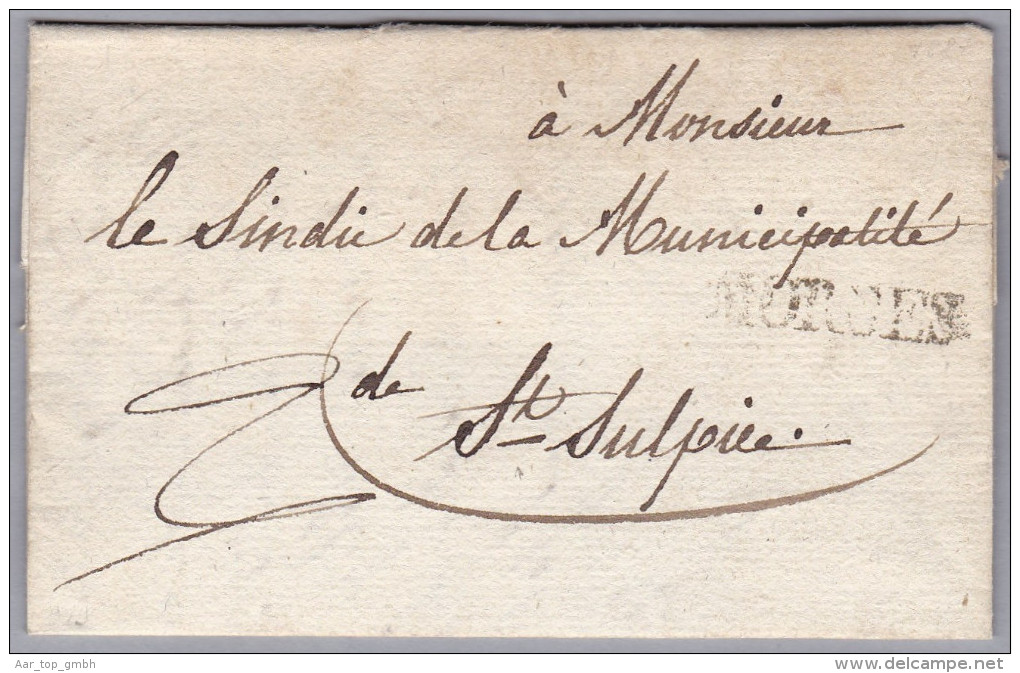 à Monsieur
le Sindic de la Municipalité
MORGES
de
St Sulpice.
Aar_top_gmbh
delcampe.net